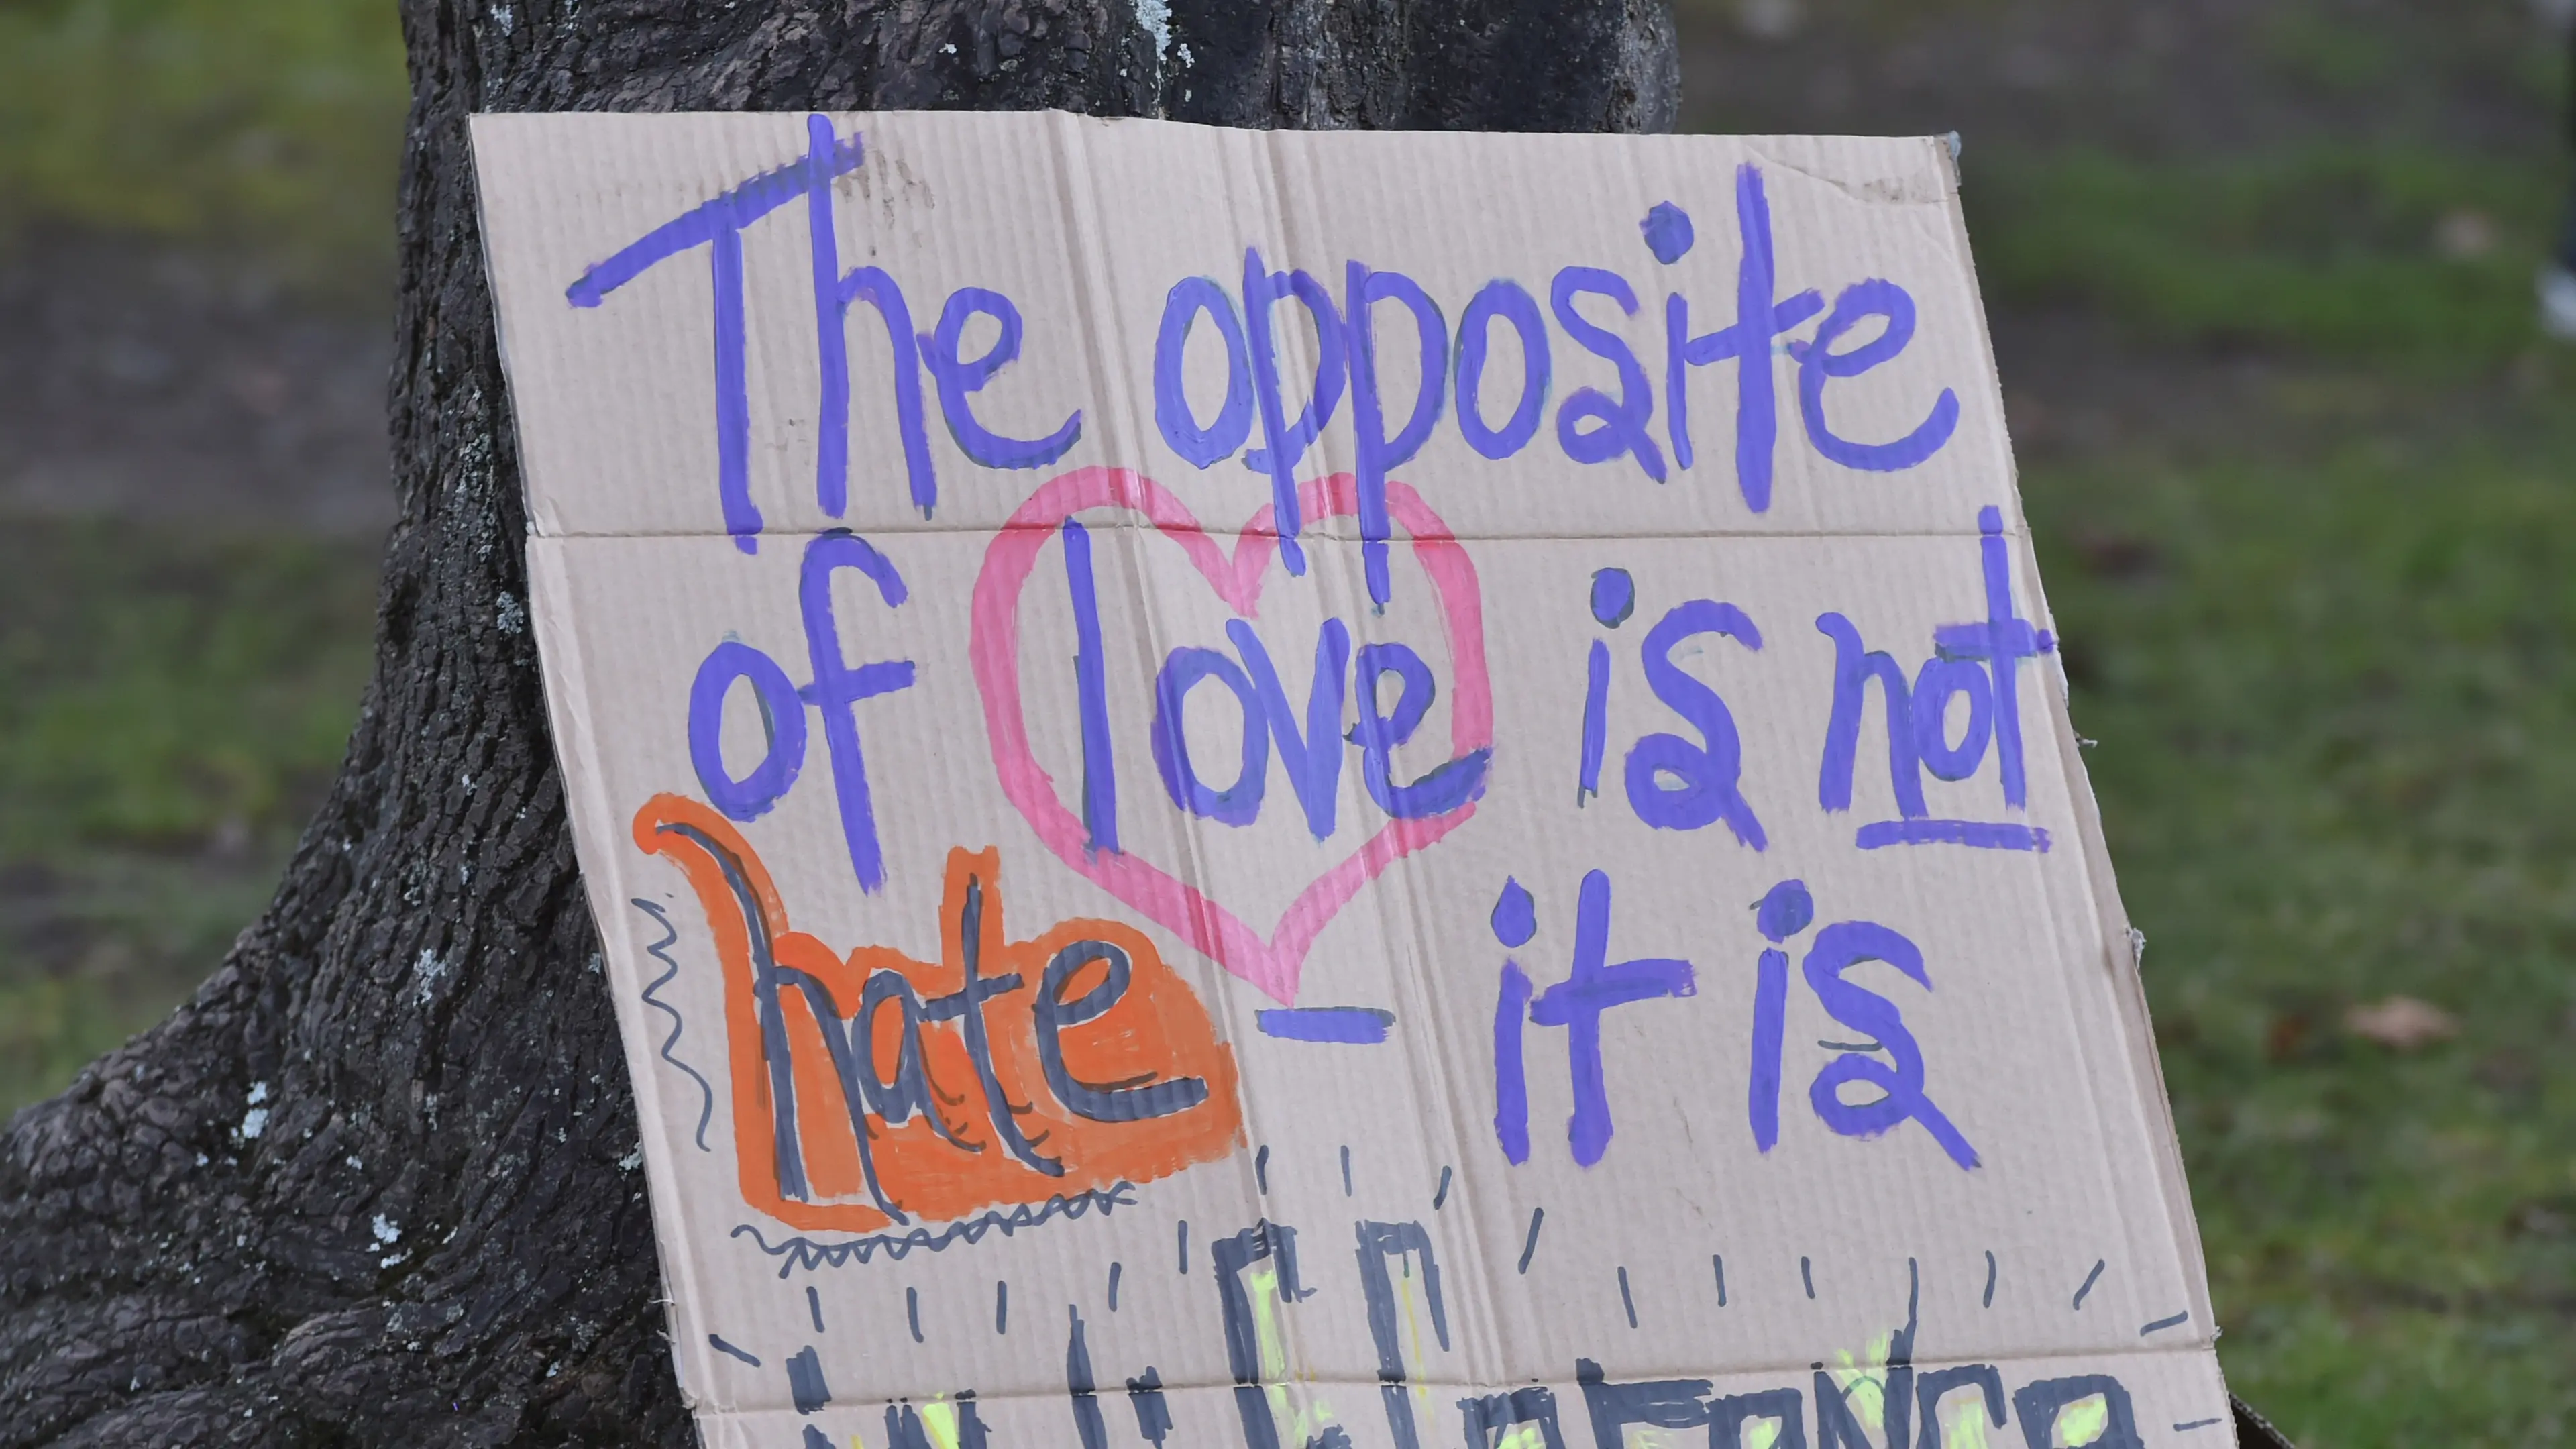 The opposite
of love is not
hate - it is